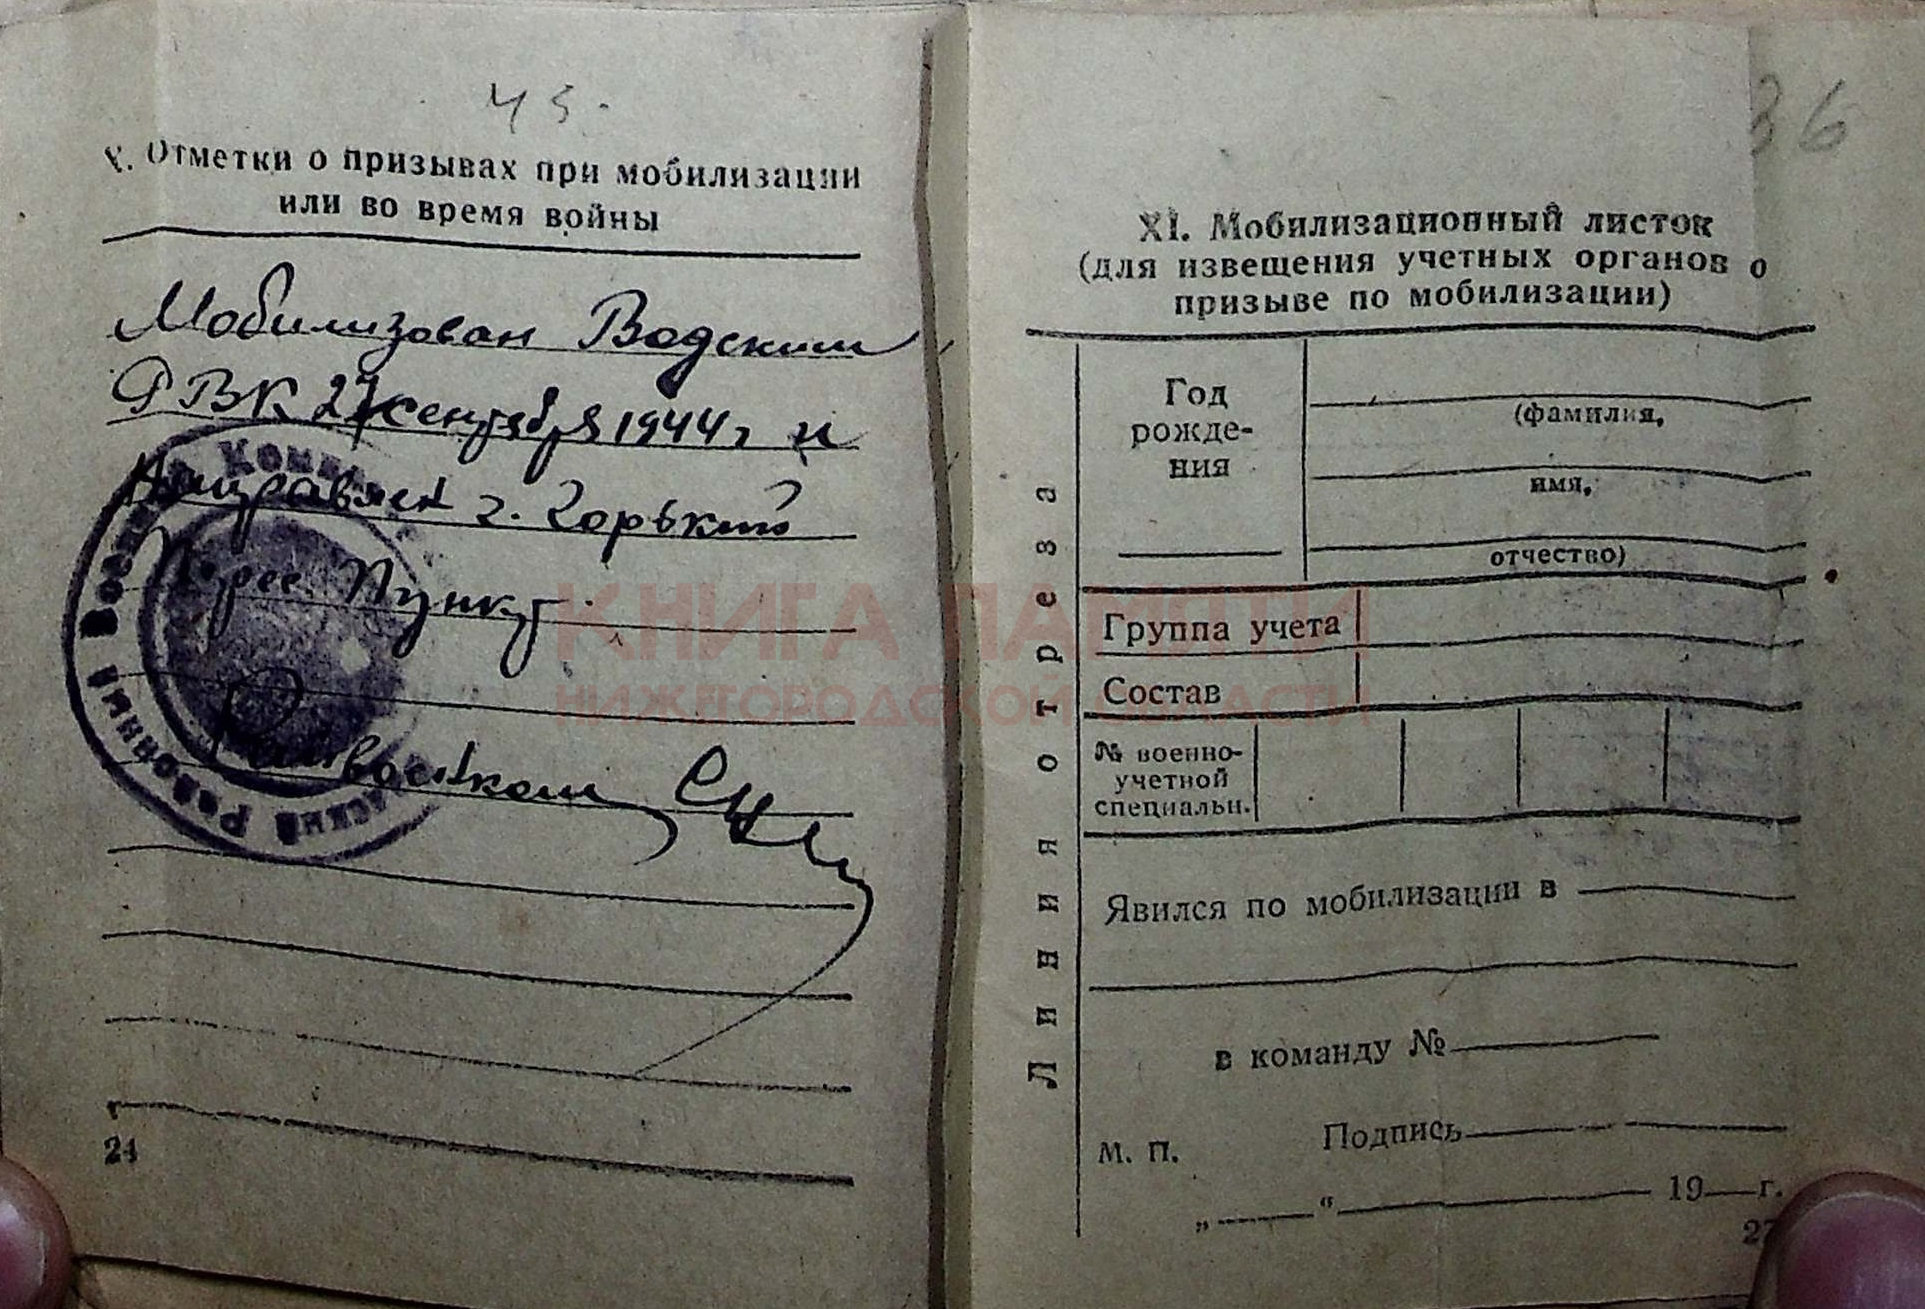 43.
X. Отметки о призывах при мобилизации
или во время войны
Мобилизован Вадским
РВК 27 сентября 1944 г и
Направлен г. Горький
Перес. Пункт.
Райвоенком
24
36
XI. Мобилизационный листок
(для извещения учетных органов о
призыве по мобилизации)
Линия отреза
Год
рожде-
ния
(фамилия,
имя,
отчество)
Группа учета
Состав
№ военно-
учетной
специальн.
Явился по мобилизации в
в команду №
Подпись
М. П.
„ “ 19 г.
Районный Военный
КНИГА ПАМЯТИ
НИЖЕГОРОДСКОЙ ОБЛАСТИ